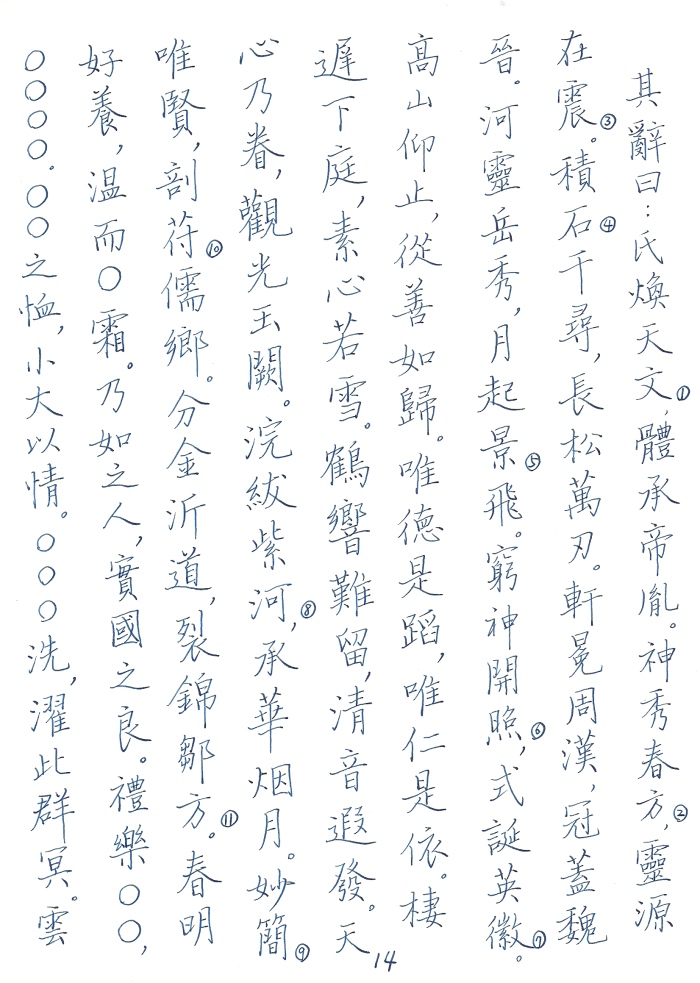 其辭曰：氏煥天文①，體承帝胤。神秀春方②，靈源
在震③。積石④千尋，長松萬刃。軒冕周漢，冠蓋魏
晉。河靈岳秀，月起景⑤飛。窮神開照⑥，式誕英徽⑦。
高山仰止，從善如歸。唯德是蹈，唯仁是依。棲
遲下庭，素心若雪。鶴響難留，清音遐發。天
心乃眷，觀光玉闕。浣紱紫河⑧，承華烟月。妙簡⑨
唯賢，剖苻⑩儒鄉。分金沂道，裂錦鄒方⑪。春明
好養，溫而〇霜。乃如之人，實國之良。禮樂〇〇，
〇〇〇〇。〇〇之恤，小大以情。〇〇〇洗，濯此群冥。雲
14